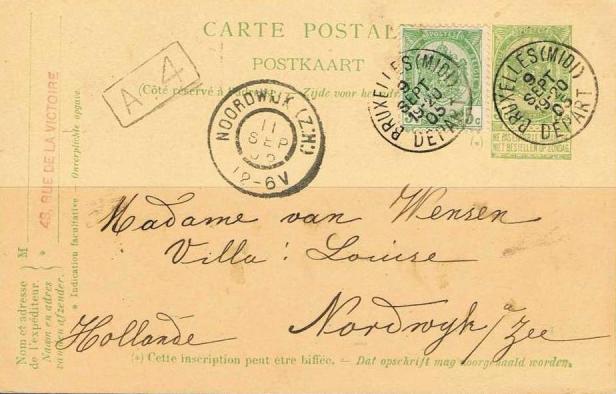 CARTE POSTALE
POSTKAART
(Côté réservé à l'adresse. — Zijde voor het
A. 4
NOORDWIJK (Z.H.)
11
SEP
05
12-6V
BRUXELLES (MIDI)
9
SEPT
DEPART
BRUXELLES (MIDI)
9
SEPT
DEPART
NE PAS LIVRER LE DIMANCHE
NIET BESTELLEN OP ZONDAG
(*)
48, RUE DE LA VICTOIRE
* Indication facultative — Onverplichte opgave.
M *
Nom et adresse
de l'expéditeur.
Naam en adres
van den afzender.
Madame van Wensen
Villa: Louise
Hollande Nordwyk/Zee
(*) Cette inscription peut être biffée. — Dat opschrift mag doorgehaald worden.